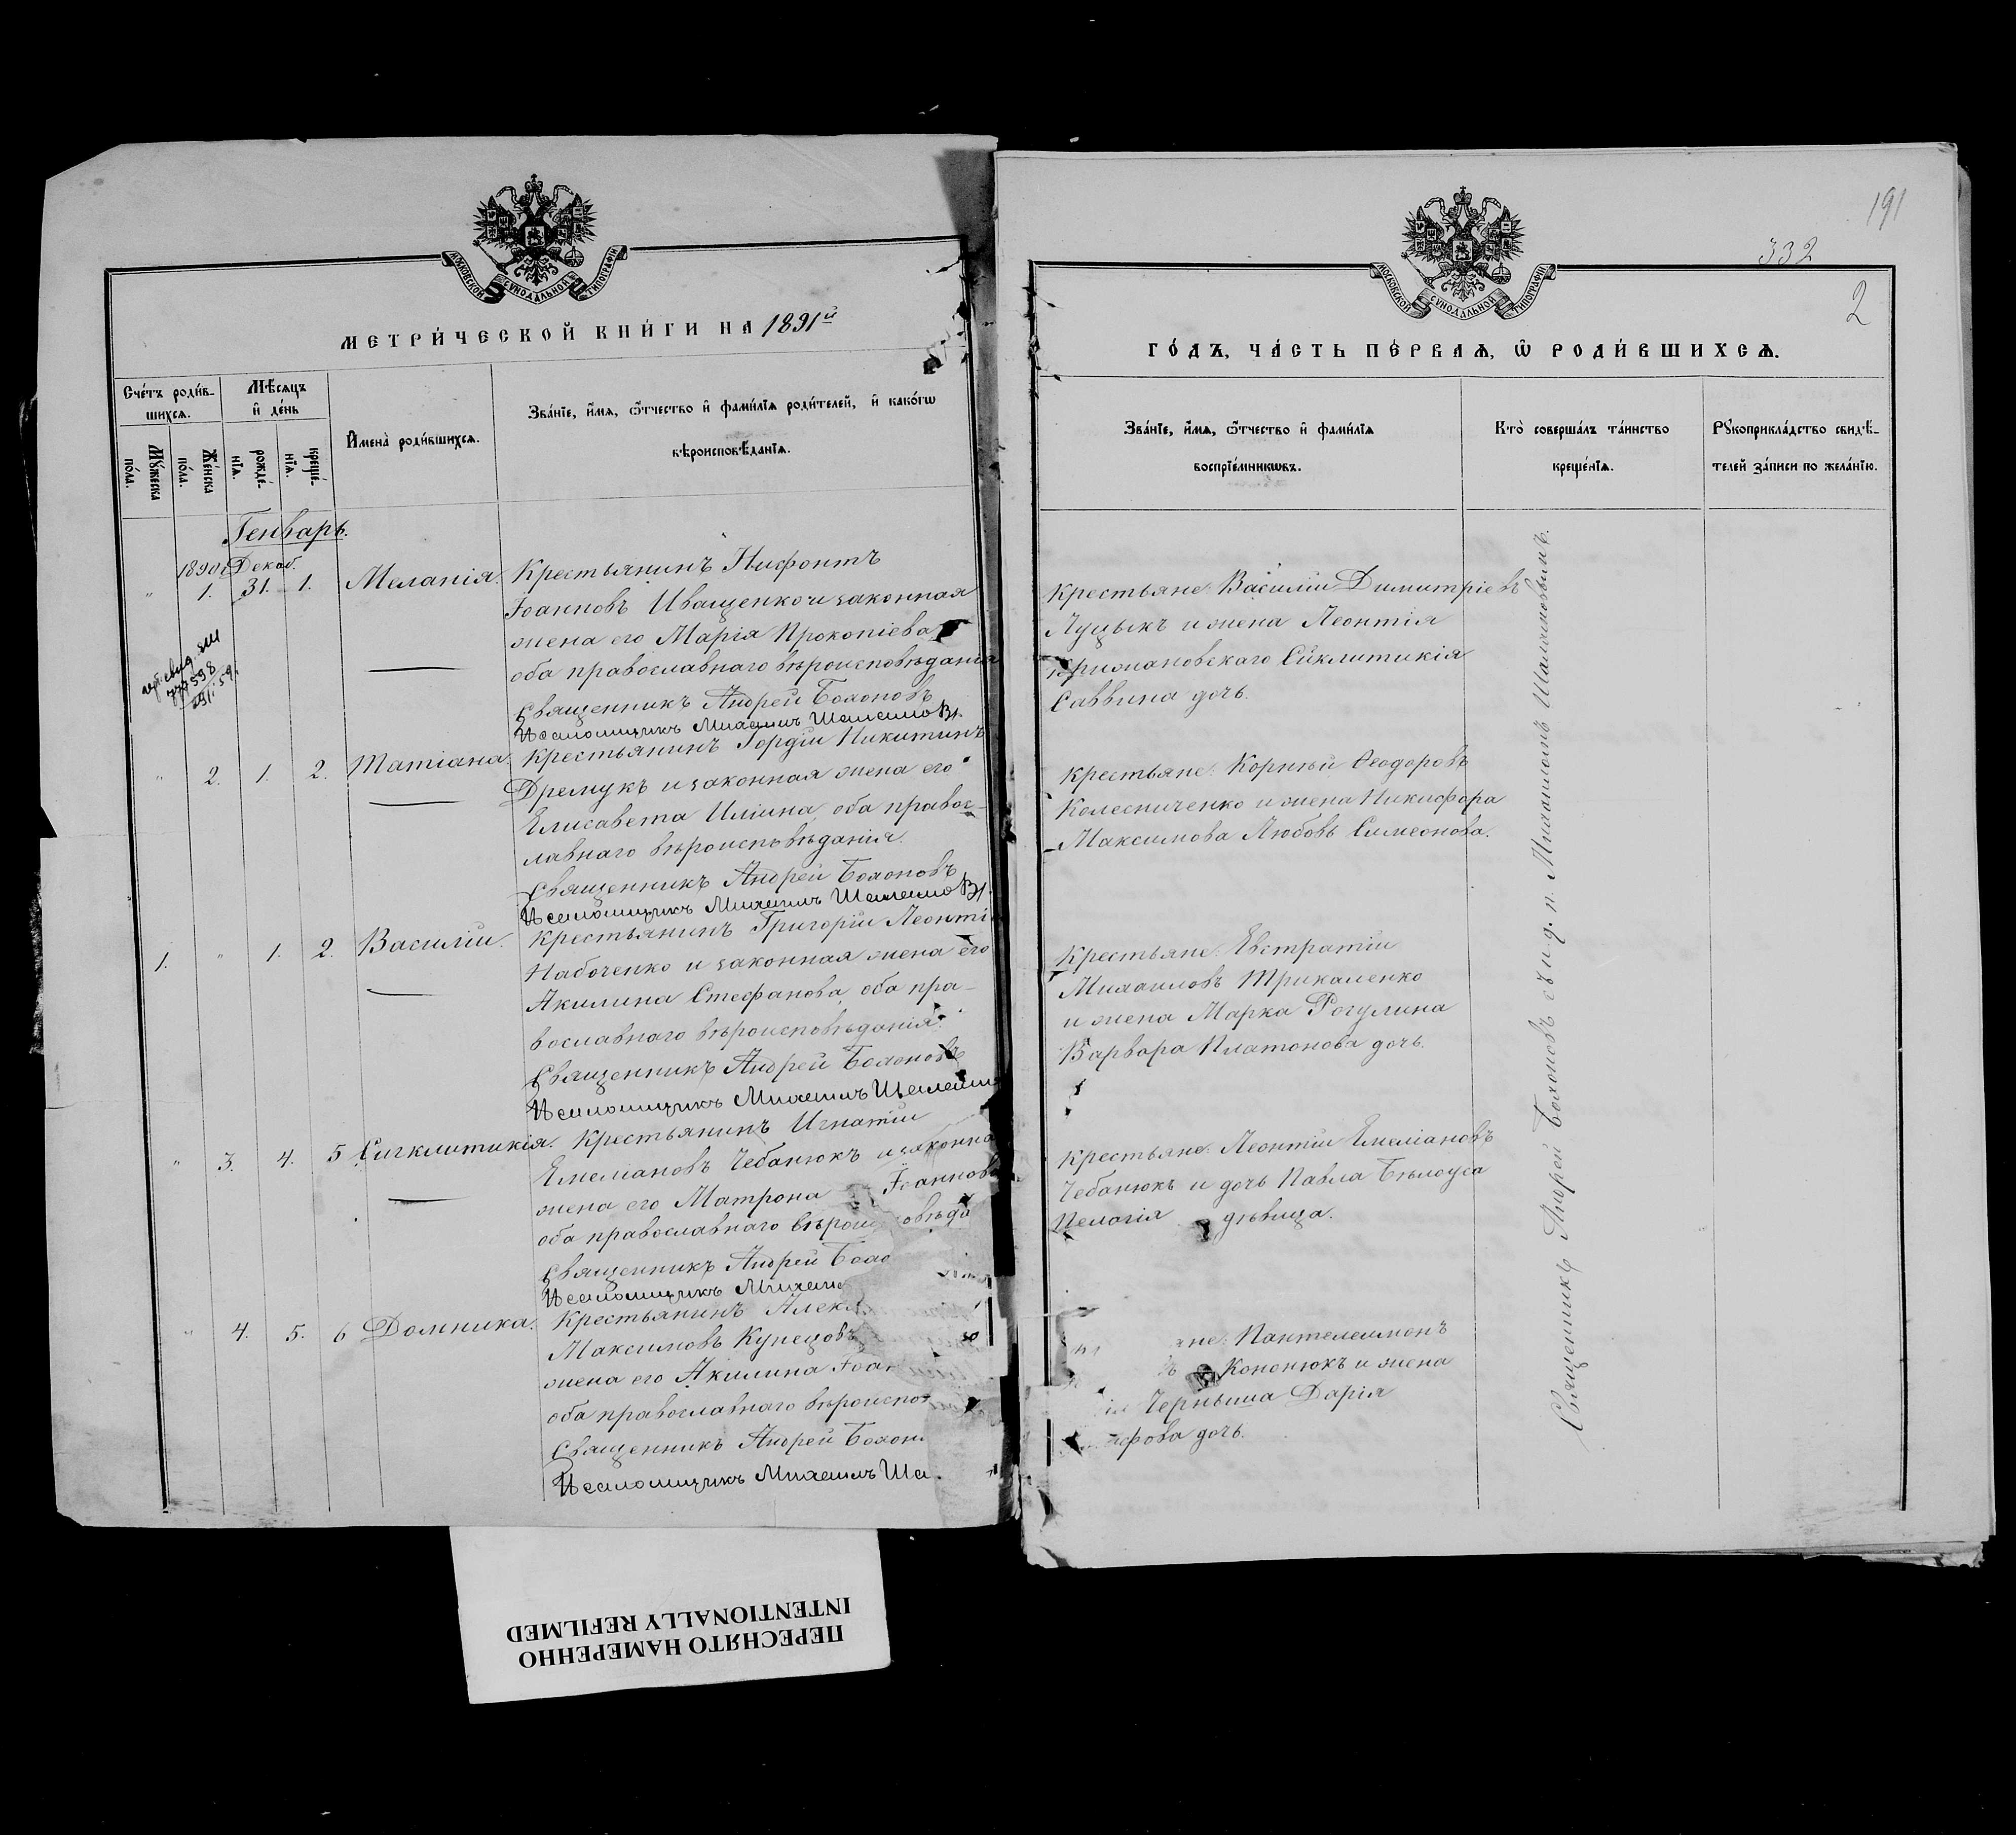 МОСКОВСКОЙ СУНОДАЛЬНОЙ ТИПОГРАФІИ
МЕТРИ́ЧЕСКОЙ КНИ́ГИ НА 1891й
Сче́тъ роди́в-
шихсѧ.
Мѣ́сѧцъ
и҆ де́нь
Мꙋ́жеска
по́ла.
Же́нска
по́ла.
рожде́-
нїѧ.
креще́-
нїѧ.
И҆мена̀ роди́вшихсѧ.
Зва́нїе, и҆́мѧ, ѻ҆́тчество и҆ фами́лїѧ роди́телей, и҆ како́гѡ
вѣроисповѣ́данїѧ.
Генварь.
1890 Декаб.
" 1. 31. 1. Меланія. Крестьянинъ Нифонтъ
Іоанновъ Иващенко и законная
жена его Марія Прокопіева
оба православнаго вѣроисповѣданія
Священникъ Андрей Бохоновъ
Псаломщикъ Михаилъ
" 2. 1. 2. Татіана. Крестьянинъ Гордій Никитинъ
Дремукъ и законная жена его
Елисавета Иліина, оба правос-
лавнаго вѣроисповѣданія.
Священникъ Андрей Бохоновъ
Псаломщикъ Михаилъ
1. " 1. 2. Василій. Крестьянинъ Григорій Леонті
Набоченко и законная жена его
Акилина Стефанова, оба пра-
вославнаго вѣроисповѣданія.
Священникъ Андрей Бохоновъ
Псаломщикъ Михаилъ
" 3. 4. 5 Сигклитикія. Крестьянинъ Игнатій
Емеліановъ Чебанюкъ и законна
жена его Матрона Іоаннов
оба православнаго вѣроис овѣда
Священникъ Андрей Бохо
Псаломщикъ Михаи
" 4. 5. 6 Домника. Крестьянинъ Алекс
Максимовъ Купецовъ
жена его Акилина Іоан
оба православнаго вѣроиспов
Священникъ Андрей Бохон
Псаломщикъ Михаилъ
191
332
2
МОСКОВСКОЙ СУНОДАЛЬНОЙ ТИПОГРАФІИ
ГО́ДЪ, ЧА́СТЬ ПЕ́РВАѦ, Ѡ҆ РОДИ́ВШИХСѦ.
Зва́нїе, и҆́мѧ, ѻ҆́тчество и҆ фами́лїѧ
воспрїе́мникѡвъ.
Кто̀ соверша́лъ та́инство
креще́нїѧ.
Рꙋкоприкла́дство свидѣ́-
телей за́писи по жела́нїю.
Крестьяне: Василій Димитріевъ
Луцыкъ и жена Леонтія
Крижановскаго Сигклитикія
Саввина дочь.
Крестьяне: Корнѣй Ѳеодоровъ
Колесниченко и жена Никифора
Максимова Любовь Симеонова.
Крестьяне: Евстратій
Михаиловъ Трикаленко
и жена Марка Рогулина
Варвара Платонова дочь.
Крестьяне: Леонтій Емеліановъ
Чебанюкъ и дочь Павла Бѣлоуса
Пелагія дѣвица.
яне: Пантелеимонъ
Кононюкъ и жена
Черныша Дарія
фова дочь.
Священникъ Андрей Бохоновъ съ и. д. п. Михаиломъ
ПЕРЕСНЯТО НАМЕРЕННО
INTENTIONALLY REFILMED